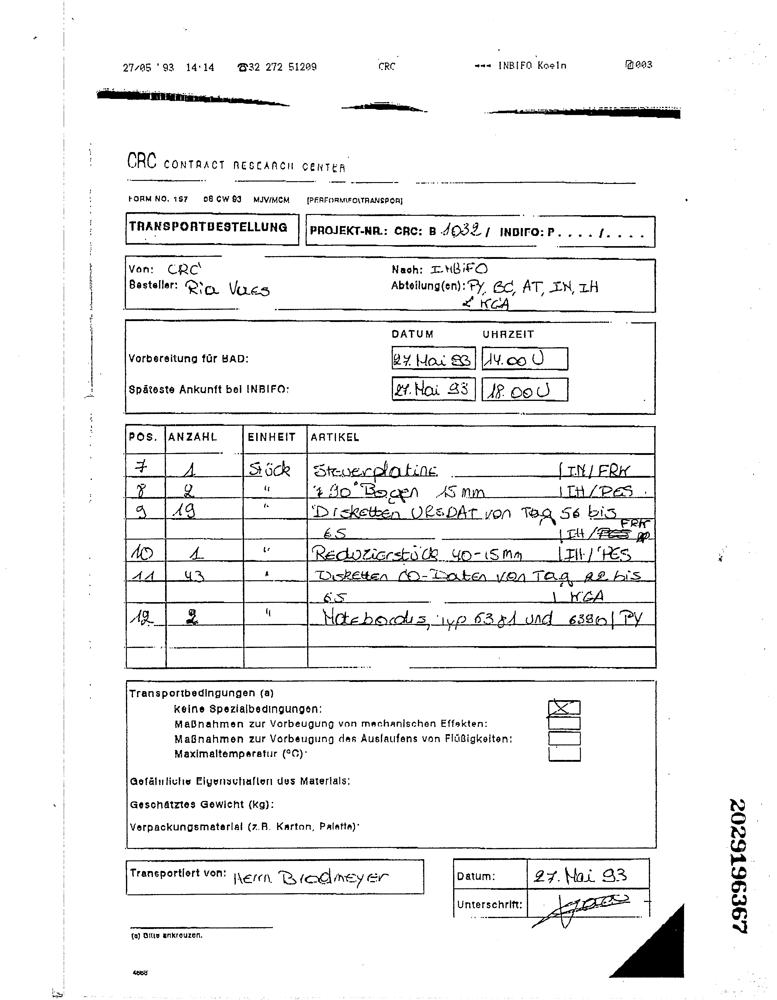 27/05 '93 14:14 ☎32 272 51209 CRC →→→ INBIFO Koeln 003
CRC CONTRACT RESEARCH CENTER
FORM NO. 157 06 CW 93 MJV/MCM [PERFORM\FO\TRANSPOR]
TRANSPORTBESTELLUNG PROJEKT-NR.: CRC: B 1032 / INBIFO: P . . . . / . . . .
Von: CRC Nach: INBIFO
Besteller: Ria Vues Abteilung(en): PY, BC, AT, IN, IH
& KGA
DATUM UHRZEIT
Vorbereitung für BAD: 27. Mai 93 14.00 U
Späteste Ankunft bei INBIFO: 27. Mai 93 18.00 U
POS. ANZAHL EINHEIT ARTIKEL
7 1 Stück Steuerplatine | IN/FRK
8 2 " 90° Bogen 15 mm | IH/PES
9 19 " Disketten URSDAT von Tag 56 bis
65 | IH/ FRK
10 1 " Reduzierstück 40-15 mm | IH/PES
11 43 " Disketten CO-Daten von Tag 22 bis
65 | KGA
12 2 " Typ 6381 und | PY
Transportbedingungen (a)
Keine Spezialbedingungen: X
Maßnahmen zur Vorbeugung von mechanischen Effekten:
Maßnahmen zur Vorbeugung des Auslaufens von Flüßigkeiten:
Maximaltemperatur (°C):
Gefährliche Eigenschaften des Materials:
Geschätztes Gewicht (kg):
Verpackungsmaterial (z.B. Karton, Palette):
Transportiert von: Herrn Brodmeyer Datum: 27. Mai 93
Unterschrift:
(a) Bitte ankreuzen.
4668
2029196367